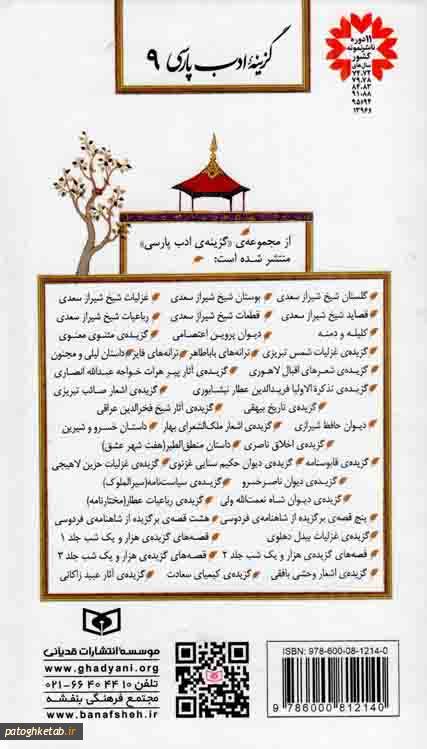 ۱۱ دوره
ناشر نمونه
کشور
سال‌های
۷۲،۷۴
۷۹،۷۸
۸۴،۸۳
۹۱،۸۸
۹۵،۹۴
۱۳۹۶
گزینهٔ ادب پارسی ۹
از مجموعه‌ی «گزینه‌ی ادب پارسی»
منتشر شده است:
گلستان شیخ شیراز سعدی بوستان شیخ شیراز سعدی غزلیات شیخ شیراز سعدی
قصاید شیخ شیراز سعدی قطعات شیخ شیراز سعدی رباعیات شیخ شیراز سعدی
کلیله و دمنه دیوان پروین اعتصامی گزیده‌ی مثنوی معنوی
گزیده‌ی غزلیات شمس تبریزی ترانه‌های باباطاهر ترانه‌های فایز داستان لیلی و مجنون
گزیده‌ی شعرهای اقبال لاهوری گزیده‌ی آثار پیر هرات خواجه عبدالله انصاری
گزیده‌ی تذکرة الاولیا فریدالدین عطار نیشابوری گزیده‌ی اشعار صائب تبریزی
گزیده‌ی تاریخ بیهقی گزیده‌ی آثار شیخ فخرالدین عراقی
دیوان حافظ شیرازی گزیده‌ی اشعار ملک‌الشعرای بهار داستان خسرو و شیرین
گزیده‌ی اخلاق ناصری داستان منطق‌الطیر(هفت شهر عشق)
گزیده‌ی قابوسنامه گزیده‌ی دیوان حکیم سنایی غزنوی گزیده‌ی غزلیات حزین لاهیجی
گزیده‌ی دیوان ناصرخسرو گزیده‌ی سیاست‌نامه(سیرالملوک)
گزیده‌ی دیوان شاه نعمت‌الله ولی گزیده‌ی رباعیات عطار(مختارنامه)
پنج قصه‌ی برگزیده از شاهنامه‌ی فردوسی هشت قصه‌ی برگزیده از شاهنامه‌ی فردوسی
گزیده‌ی غزلیات بیدل دهلوی قصه‌های گزیده‌ی هزار و یک شب جلد ۱
قصه‌های گزیده‌ی هزار و یک شب جلد ۲ قصه‌های گزیده‌ی هزار و یک شب جلد ۳
گزیده‌ی اشعار وحشی بافقی گزیده‌ی کیمیای سعادت گزیده‌ی آثار عبید زاکانی
موسسه انتشارات قدیانی
www.ghadyani.org
۰۲۱-۶۶ ۴۰ ۴۴ ۱۰
مجتمع فرهنگی بنفشه
www.banafsheh.ir
ISBN: 978-600-08-1214-0
9 786000 812140
patoghketab.ir